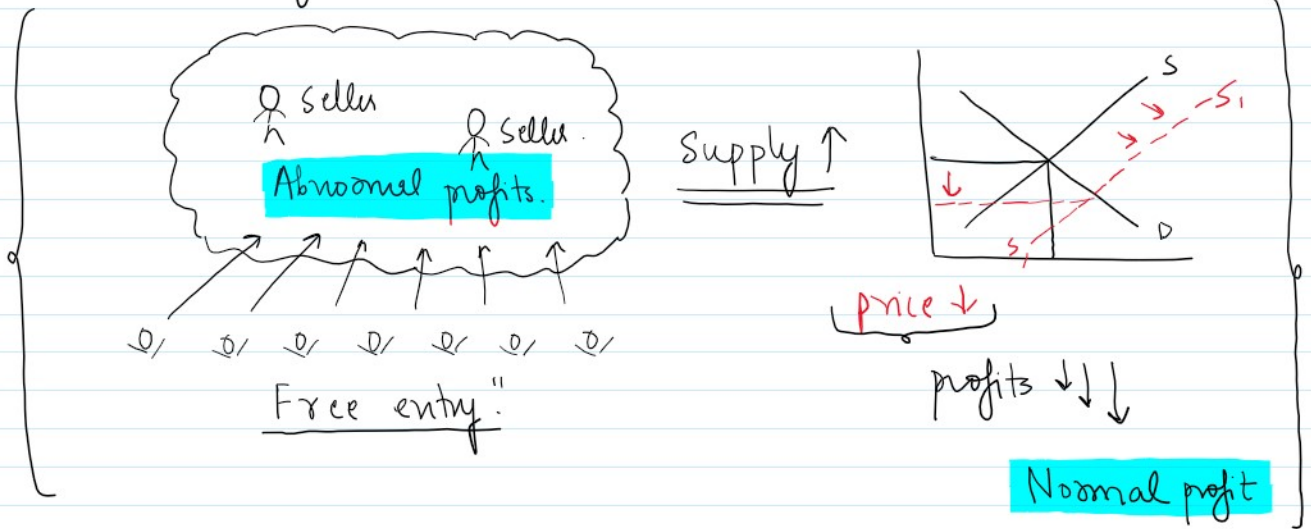 seller
seller.
Abnormal profits.
Free entry."
Supply ↑
S
S₁
D
S₁
price ↓
profits ↓↓↓
Normal profit